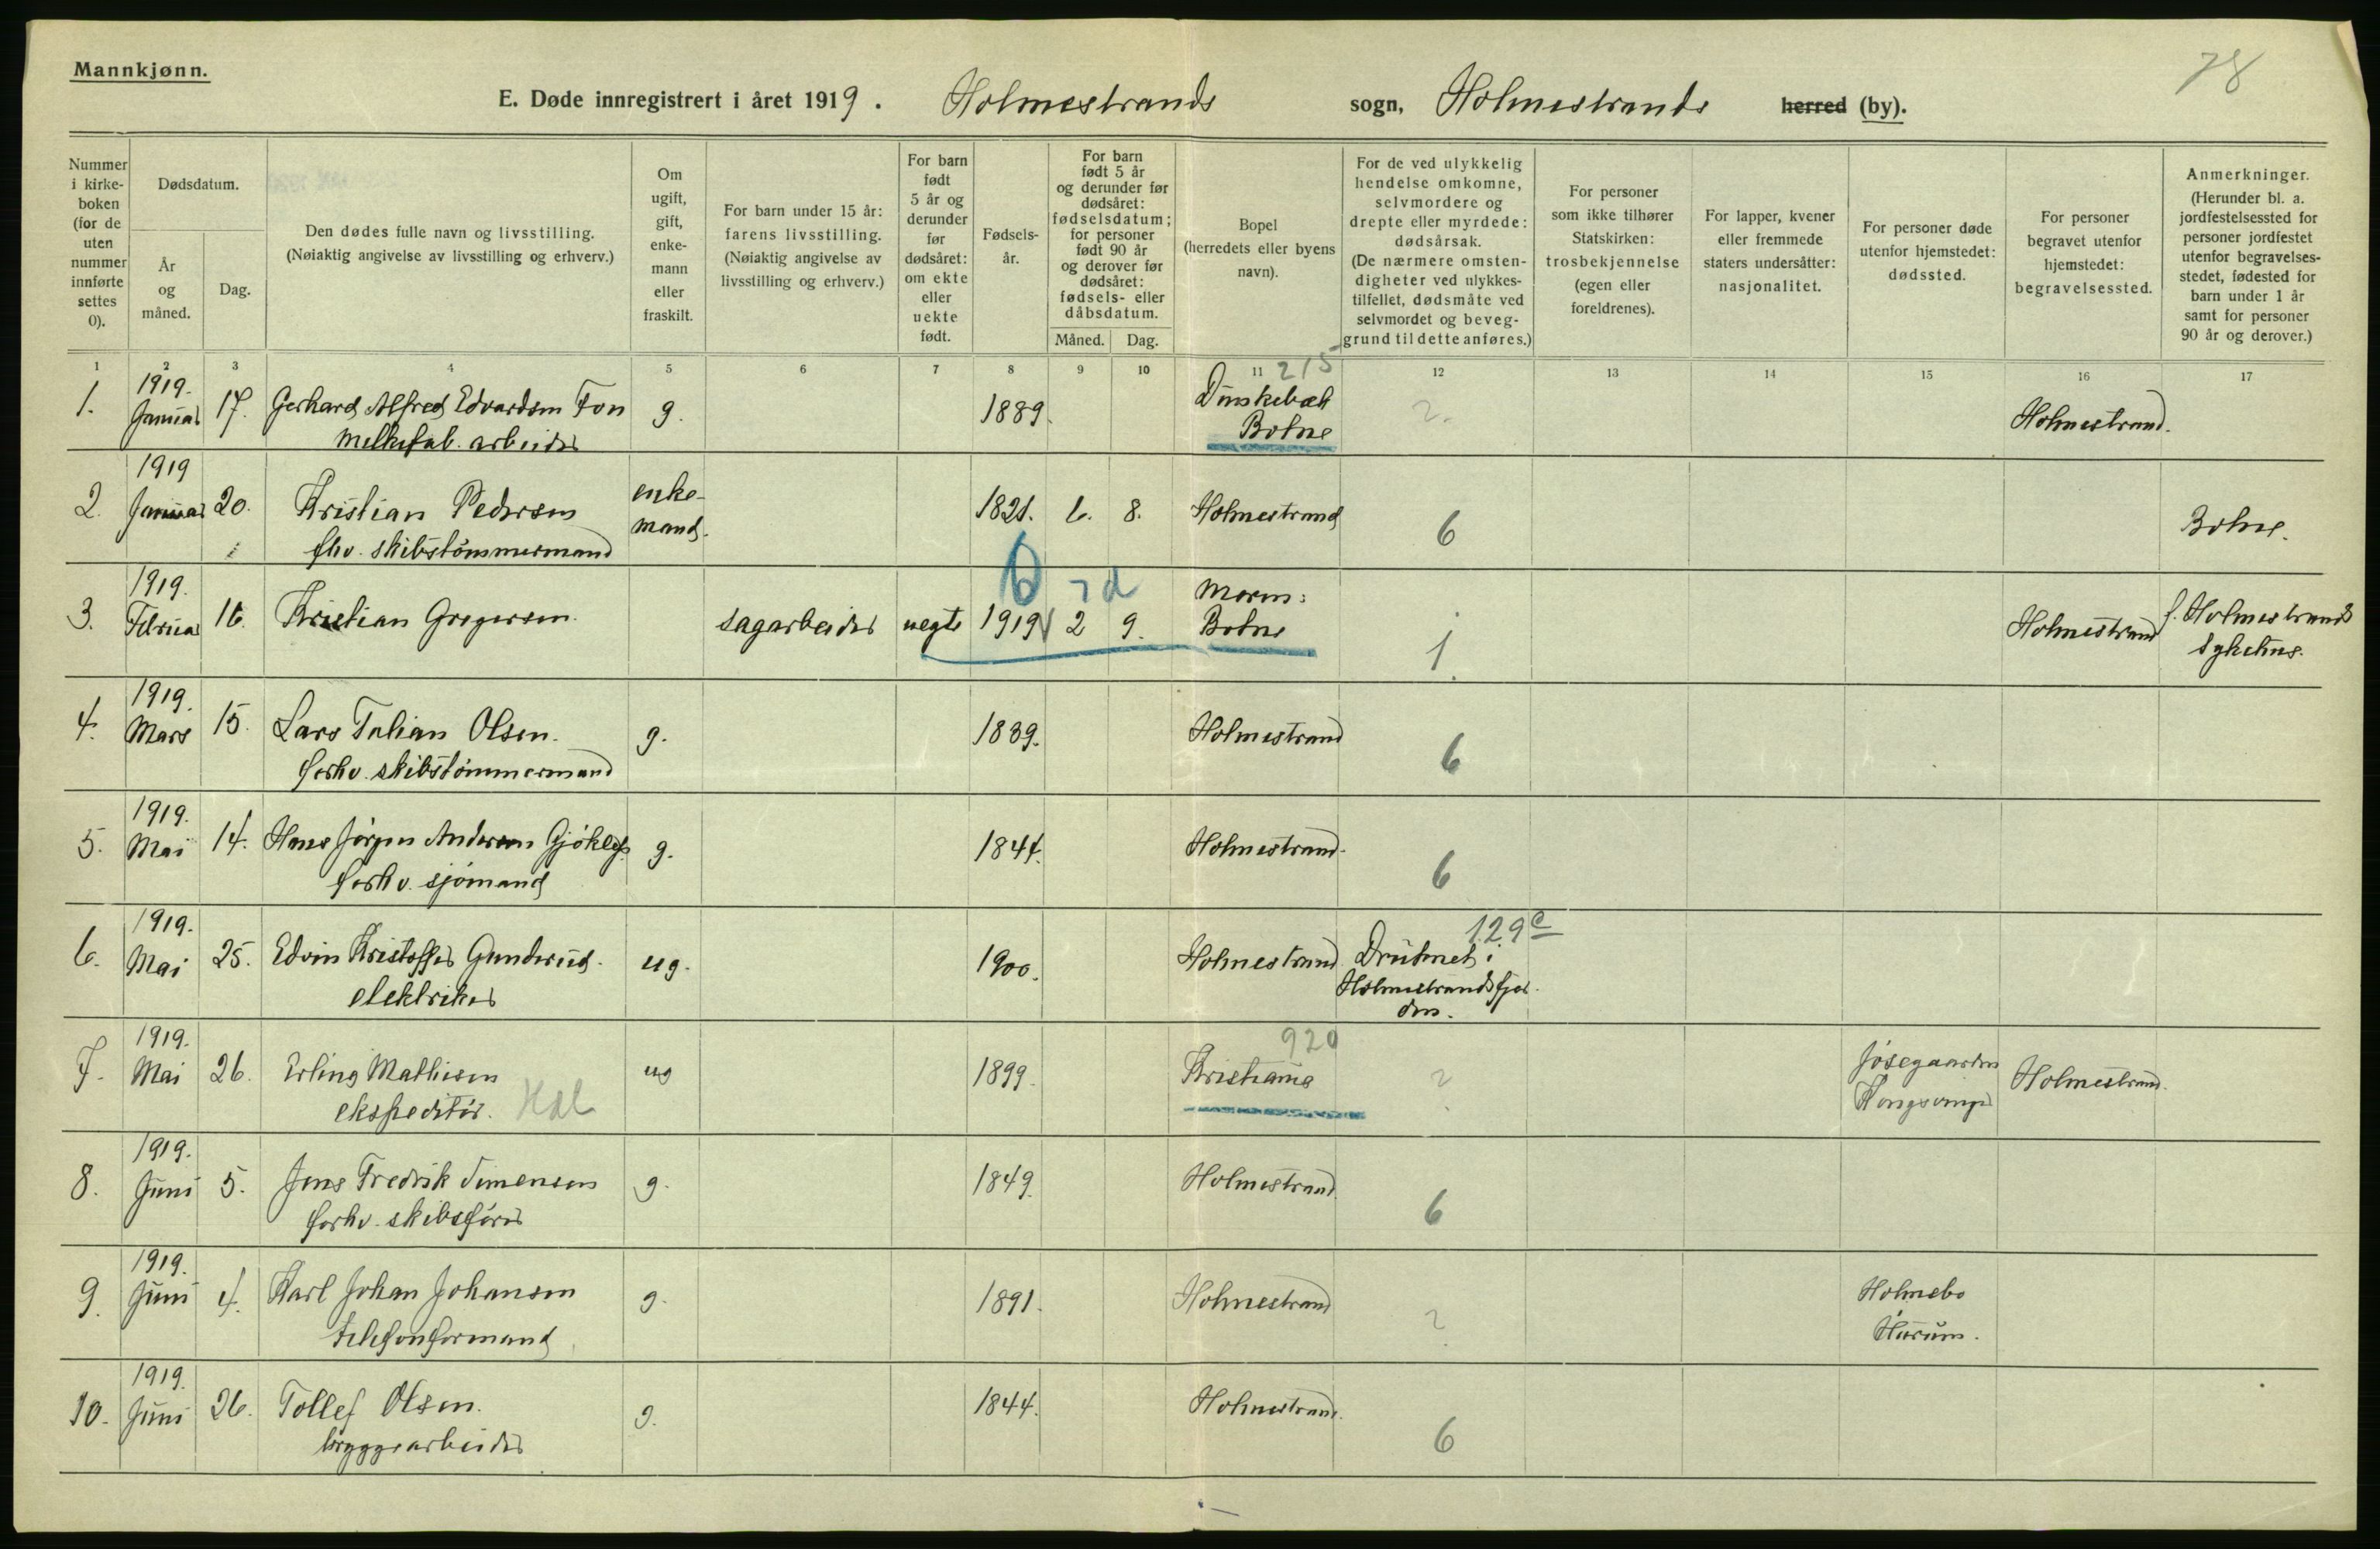 Mannkjønn.
78
E. Døde innregistrert i året 1919. Holmestrands sogn, Holmestrands herred (by).
Nummer i kirkeboken (for de uten nummer innførte settes 0).
Dødsdatum.
År og måned.
Dag.
Den dødes fulle navn og livsstilling.
(Nøiaktig angivelse av livsstilling og erhverv.)
Om ugift, gift, enkemann eller fraskilt.
For barn under 15 år: farens livsstilling.
(Nøiaktig angivelse av livsstilling og erhverv.)
For barn født 5 år og derunder før dødsåret: om ekte eller uekte født.
Fødselsår.
For barn født 5 år og derunder før dødsåret: fødselsdatum; for personer født 90 år og derover før dødsåret: fødsels- eller dåbsdatum.
Måned.
Dag.
Bopel
(herredets eller byens navn).
For de ved ulykkelig hendelse omkomne, selvmordere og drepte eller myrdede: dødsårsak.
(De nærmere omstendigheter ved ulykkestilfellet, dødsmåte ved selvmordet og beveggrund til dette anføres.)
For personer som ikke tilhører Statskirken: trosbekjennelse (egen eller foreldrenes).
For lapper, kvener eller fremmede staters undersåtter: nasjonalitet.
For personer døde utenfor hjemstedet: dødssted.
For personer begravet utenfor hjemstedet: begravelsessted.
Anmerkninger.
(Herunder bl. a. jordfestelsessted for personer jordfestet utenfor begravelsesstedet, fødested for barn under 1 år samt for personer 90 år og derover.)
1 2 3 4 5 6 7 8 9 10 11 12 13 14 15 16 17
215
1. 1919. Januar 17. Gerhard Alfred Edvardsen Fon g. 1889. Dunskebæk Botne 2. Holmestrand.
melkefab. arbeider
2. 1919 Januar 20. Kristian Pedersen enkemand. 1821. 6. 8. Holmestrand 6 Botne.
fhv. skibstømmermand
3. 1919. Februar 16. Kristian Gregersen. sagarbeider uegte 1919 2 9. Moren: Botne 1. Holmestrand f. Holmestrands Sykehus.
6 7 d
4. 1919. Mars 15. Lars Julian Olsen. g. 1839. Holmestrand 6
forhv. skibstømmermand
5. 1919. Mai 14. Hans Jørgen Andersen g. 1844. Holmestrand. 6
forhv. sjømand
6. 1919. Mai 25. Edvin Kristoffer Gunderud. ug. 1900. Holmestrand Druknet i Holmestrandsfjorden.
129c
elektriker
920
7. 1919. Mai 26. Erling Mathisen ug 1899. Kristiania 2 Kongsvinger Holmestrand.
ekspeditør.
8. 1919. Juni 5. Jens Fredrik Simensen g. 1849. Holmestrand 6
forhv. skibsfører
9. 1919. Juni 4. Karl Johan Johansen g. 1891. Holmestrand 2 Holmsbo Hurum.
telefonformand
10. 1919. Juni 26. Tollef Olsen. g. 1844. Holmestrand. 6
bryggearbeider